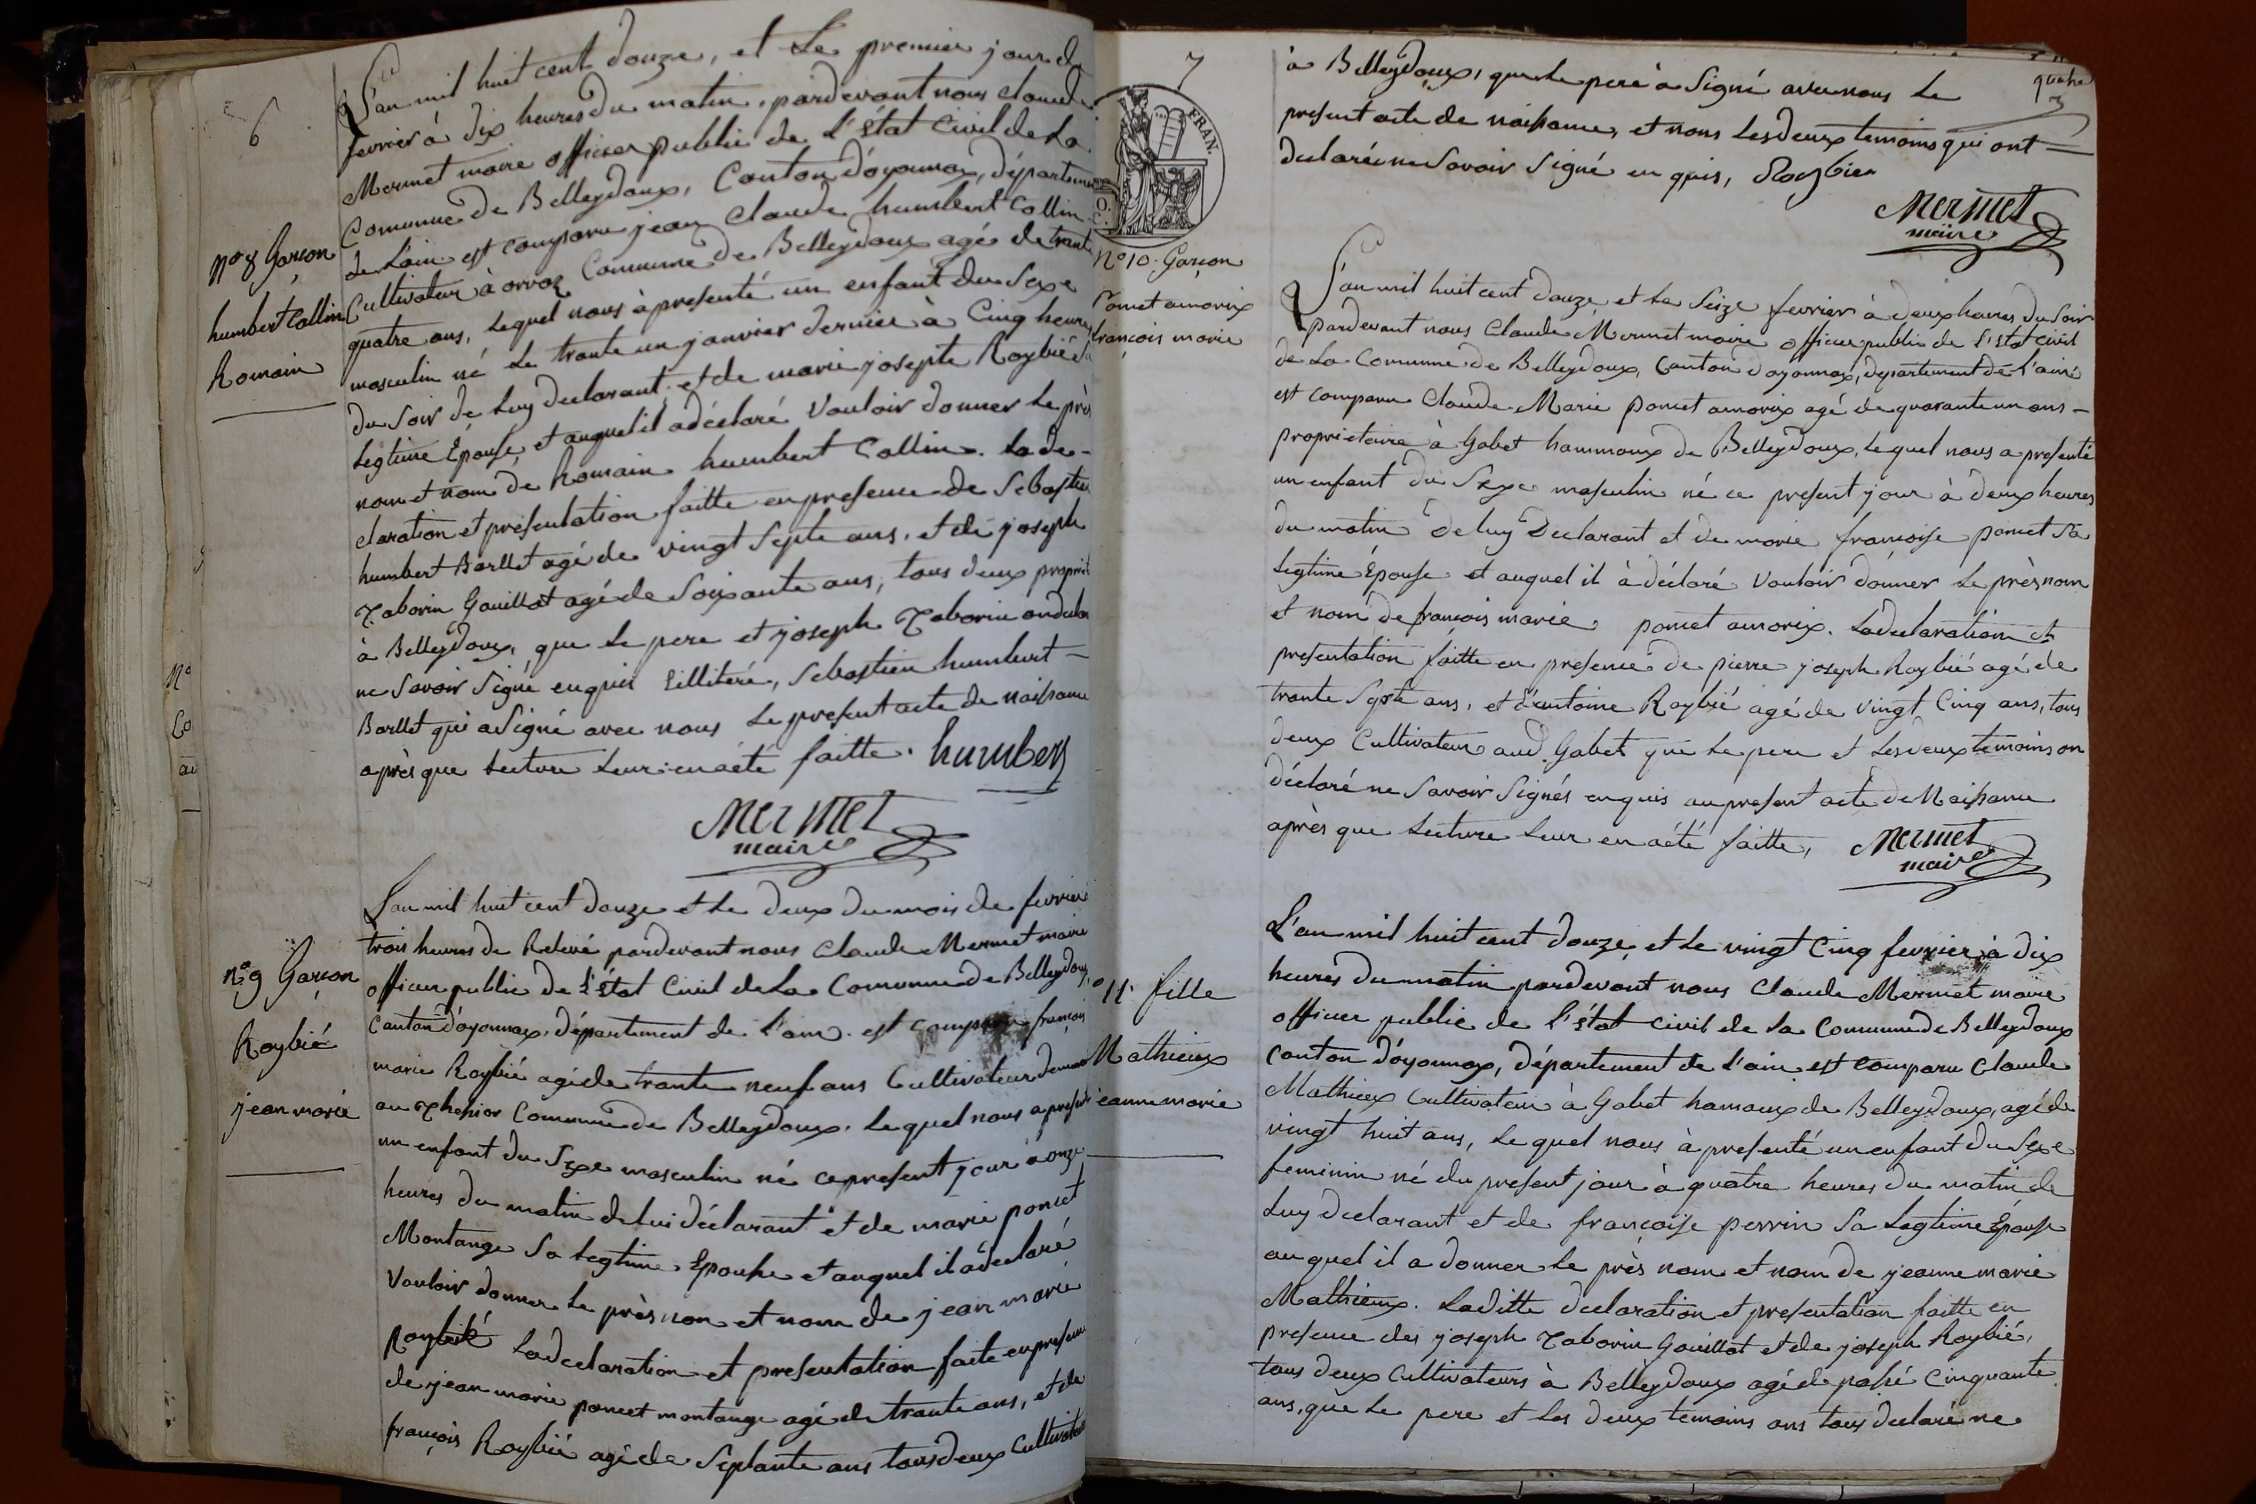 6
L'an mil huit cent douze, et Le premier jour de
fevrier à dix heures du matin, pardevant nous claude
Mermet maire officier public de L'état Civil de La
Comunne de Belleydoux, Canton d'oyonnax, départemen
de Lain est comparu jean Claude humbert Collin
Cultivateur à orvoz Comunne de Belleydoux agé de trante
quatre ans, Lequel nous à presenté un enfant du Sexe
masculin né Le trante un janvier dernier à Cinq heures
du Soir de Luy declarant et de marie josepte Roybié Sa
Legtime Epouse, et auquel il a déclaré Vouloir donner Le près
nom et nom de Romain humbert Collin. La de-
claration et présentation faitte en presence de Sebastien
humbert Barllet agé de vingt Septe ans, et de joseph
Taborin Gouillot agé de Soixante ans, tous deux propriet
à Belleydoux, que Le pere et joseph Taborin on declare
ne Savoir Signé enquis Lilliteré, Sebastien humbert
Barllet qui a Signé avec nous Le present acte de naissance
après que Lecture Leur en aété faitte. humbert
Mermet
maire
no 8 Garçon
humbert Collin
Romain
L'an mil huit cent douze et Le deux du mois de fevrier
trois heures de Relevé pardevant nous Claude Mermet maire
officier public de L'état Civil de La Comunne de Belleydoux
Canton d'oyonnax, département de L'ain. est comparu françois
marie Roybié agé de trante neuf ans Cultivateur demeur
au Comunne de Belleydoux. Le quel nous a presenté
un enfant du Sexe masculin né ce present jour à onze
heures du matin de Lui déclarant et de marie poncet
Montange Sa Legtime Epouse et auquel il a declaré
Vouloir donner Le près non et nom de jean marie
Roybié La declaration et presentation faite en presence
de jean marie poncet montange agé de trante ans, et de
françois Roybié agé de Septante ans tous deux Cultivateurs
no 9 Garçon
Roybié
jean marie
No
Co
7
FRAN.
à Belleydoux, que Le pere à Signé avec nous Le
present acte de naissance, et nous Les deux temoins qui ont
declaré ne Savoir Signé en quis, Roybier
Mermet
maire
No 10. Garçon
Poncet amorix
françois marie
L'an mil huit cent douze, et Le Seize fevrier à deux heures du Soir
pardevant nous Claude Mermet maire officier public de L'état civil
de La Comunne de Belleydoux, Canton d'oyonnax, departement de L'ain
est comparu Claude Marie poncet amorix agé de quarante un ans
proprietaire à Gobet hammaux de Belleydoux, Le quel nous a presenté
un enfant du Sexe masculin né ce present jour à deux heures
du matin de luy Declarant et de marie françoise poncet Sa
Legtime Épouse et auquel il à déclaré Vouloir donner Le près nom
et nom de françois marie poncet amorix. La declaration et
presentation faitte en presence de pierre joseph Roybié agé de
trante Septe ans, et d'antoine Roybié agé de Vingt Cinq ans, tous
deux Cultivateur aud. Gobet que Le pere et Les deux temoins on
déclaré ne Savoir Signés enquis au present acte de Naissance
après que Lecture Leur en aété faitte, Mermet
maire
11. fille
Mathieux
jeanne marie
L'an mil huit cent douze, et Le vingt Cinq fevrier à dix
heures du matin pardevant nous Claude Mermet maire
officier public de L'état civil de La Comunne de Belleydoux
canton d'oyonnax, département de L'ain est comparu Claude
Mathieux Cultivateur à Gobet hamaux de Belleydoux, agé de
vingt huit ans, Le quel nous à presenté un enfant du Sexe
feminin né du present jour à quatre heures du matin de
Luy declarant et de françoise perrin Sa Legtime Épouse
au quel il a donner Le près nom et nom de jeanne marie
Mathieux. Laditte declaration et presentation faitte en
presence des joseph Taborin Gouillot et de joseph Roybié,
tous deux Cultivateurs à Belleydoux agé de passé Cinquante
ans, que Le pere et Les deux temoins ons tous declaré ne